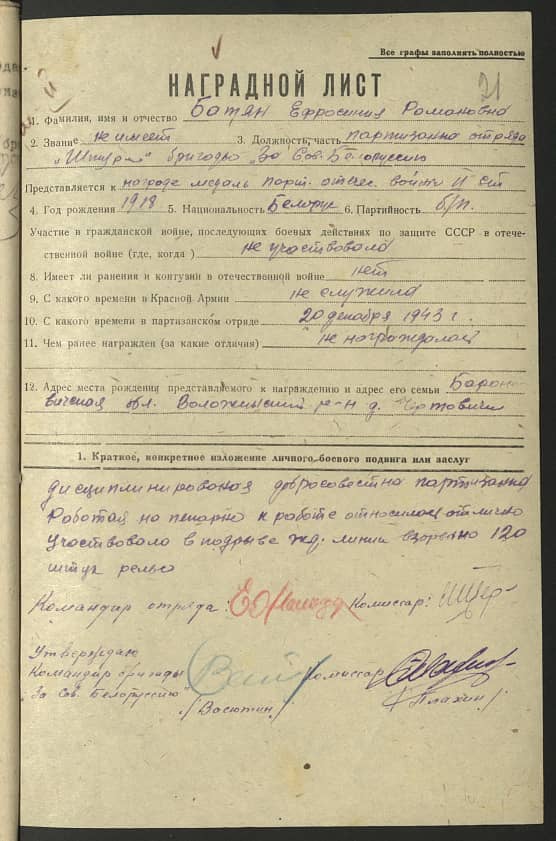 Все графы заполнять полностью
21
НАГРАДНОЙ ЛИСТ
1. Фамилия, имя и отчество Батян Ефросиния Романовна
2. Звание не имеет 3. Должность, часть партизанка отряда
бригады "За Сов. Белоруссию
Представляется к награде медаль парт. отечес. войны II ст
4. Год рождения 1918 5. Национальность Белорус 6. Партийность б/п.
Участие в гражданской войне, последующих боевых действиях по защите СССР в отече-
ственной войне (где, когда) не участвовала
8. Имеет ли ранения и контузии в отечественной войне нет
9. С какого времени в Красной Армии не служила
10. С какого времени в партизанском отряде 20 декабря 1943 г.
11. Чем ранее награжден (за какие отличия) не награждалась
12. Адрес места рождения представляемого к награждению и адрес его семьи Барано
вичская обл. Воложинский р-н д. Чертовичи
1. Краткое, конкретное изложение личного боевого подвига или заслуг
дисциплинированая добросовестна партизанка
Работая на пекарне к работе относилась отлично
Участвовала в подрыве жд. линии взорвано 120
штук рельс
Командир отряда: Комиссар:
Утверждаю
Командир бригады Комиссар
"За Сов. Белоруссию"
/Васютин/ /Плахин/